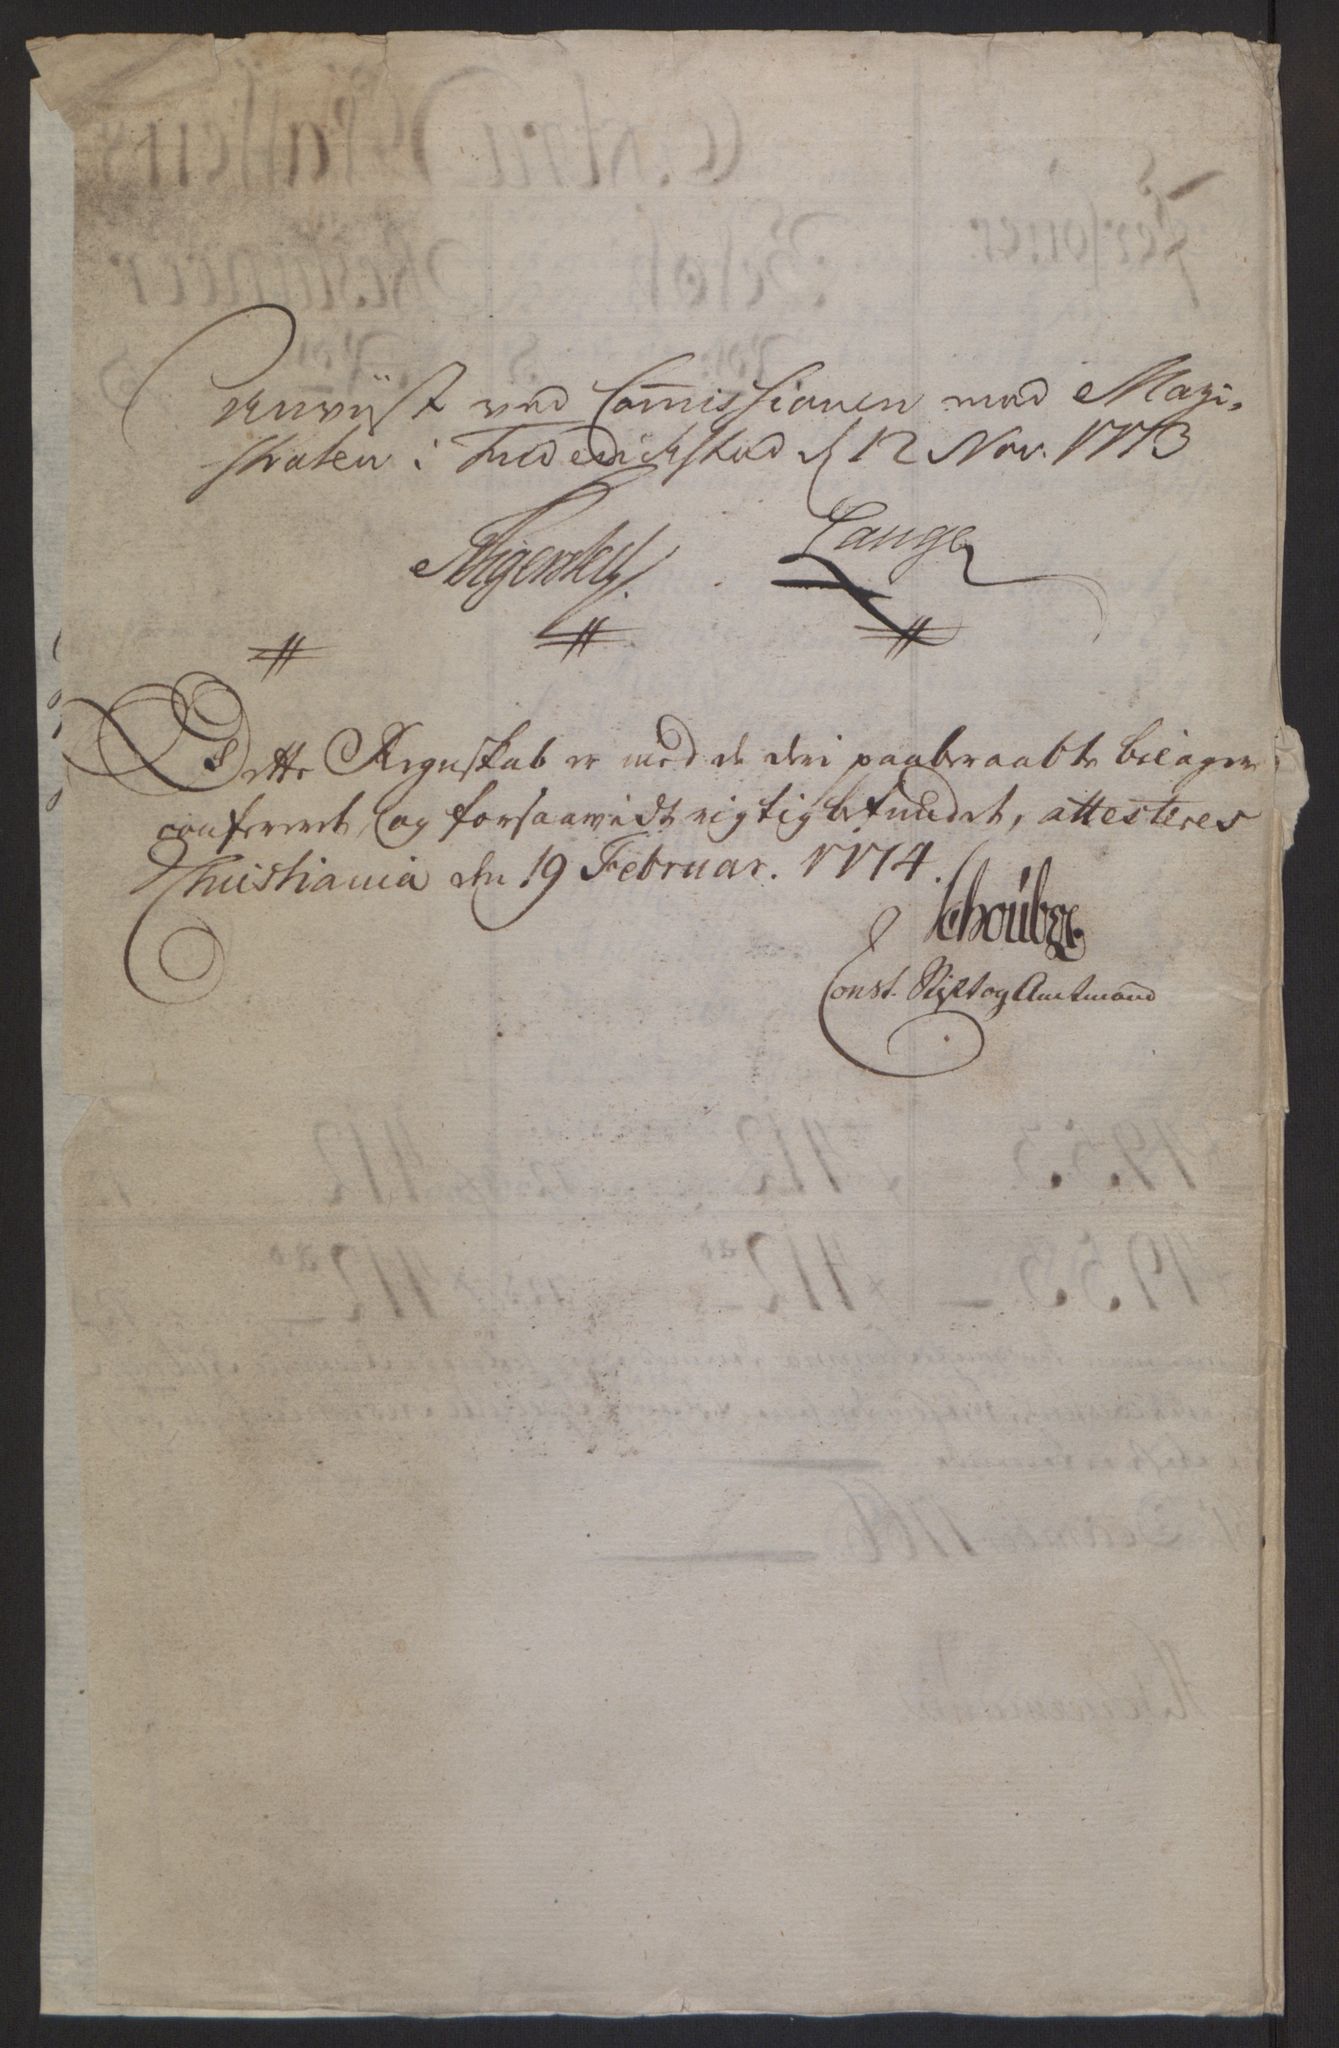 Anviist ved Com̄issionen med Magi-
straten i Friderichstad d 12 Nov. 1773
Lange
Dette Regnskab er med de deri paaberaabte bilager
confereret, og forsaavidt rigtig befundet, attesteres
Christiania den 19 Februar. 1774.
Schoubye.
Const. Stift og Amtmand